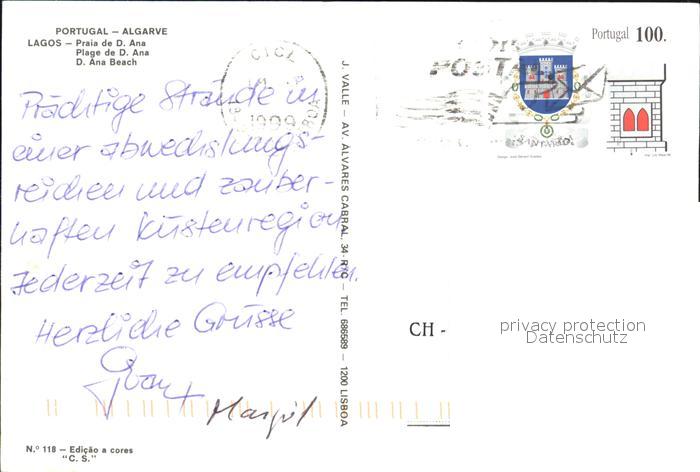 PORTUGAL — ALGARVE
LAGOS — Praia de D. Ana
Plage de D. Ana
D. Ana Beach
Prächtige Strände in
einer abwechslungs-
reichen und zauber-
haften Küstenregion.
Jederzeit zu empfehlen.
Herzliche Grüsse
Margrit
N.º 118 — Edição a cores
"C. S."
J. VALLE — AV. ALVARES CABRAL, 34- R/C — TEL. 688589 — 1200 LISBOA
CICL
1999
Portugal 100.
CH -
privacy protection
Datenschutz